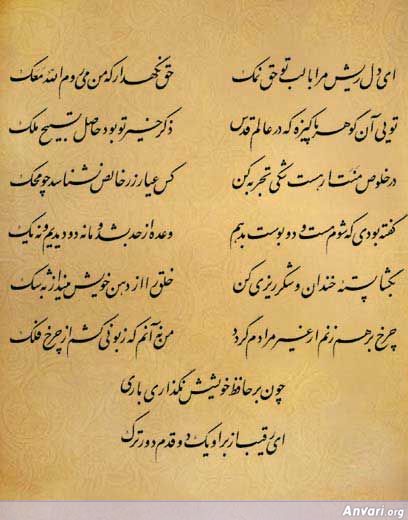 ای دل ریش مرا با لب تو حق نمک حق نگهدار که من می روم الله معک
تویی آن گوهر پاکیزه که در عالم قدس ذکر خیر تو بود حاصل تسبیح ملک
در خلوص منت ار هست شکی تجربه کن کس عیار زر خالص نشناسد چو محک
گفته بودی که شوم مست و دو بوست بدهم وعده از حد بشد و ما نه دو دیدیم و نه یک
بگشا پسته خندان و شکر ریزی کن خلق را از دهن خویش مینداز به شک
چرخ بر هم زنم ار غیر مرادم گردد من نه آنم که زبونی کشم از چرخ فلک
چون بر حافظ خویشش نگذاری باری
ای رقیب از بر او یک دو قدم دورترک
Anvari.org